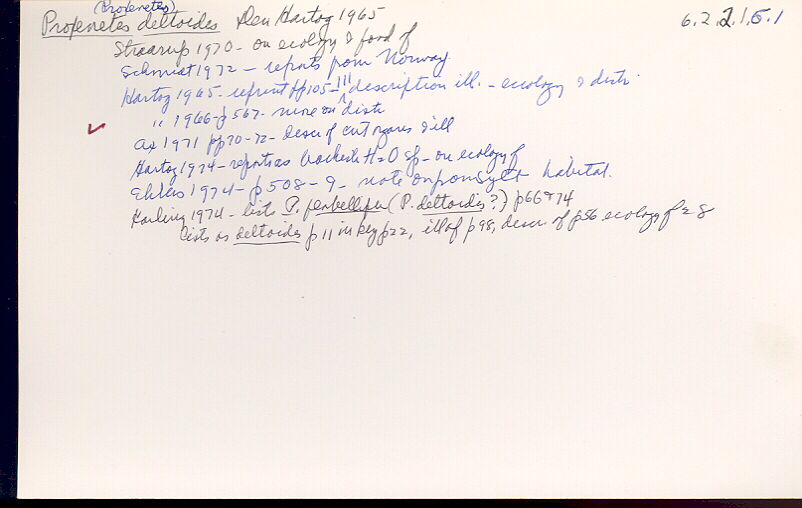 (Proxenetes)
Proxenetes deltoides Den Hartog 1965 6.2.2.1.5.1
Straarup 1970 - on ecology & food of
Schmidt 1972 - reports from Norway
Hartog 1965 - reprint pp 105-111 description ill. - ecology & distr.
" 1966 - p 567 - more on distr
Ax 1971 pp 70-72 - descr of cut organs & ill
Hartog 1974 - reports as brackish H2O sp - on ecology of
Ehlers 1974 - p 508-9 - note on from Sylt habitat.
Karling 1974 - lists P. flabellifer (P. deltoides?) p 66 & 74
lists as deltoides p 11 in key p 22, ill of p 98, descr of p 56 ecology of 28